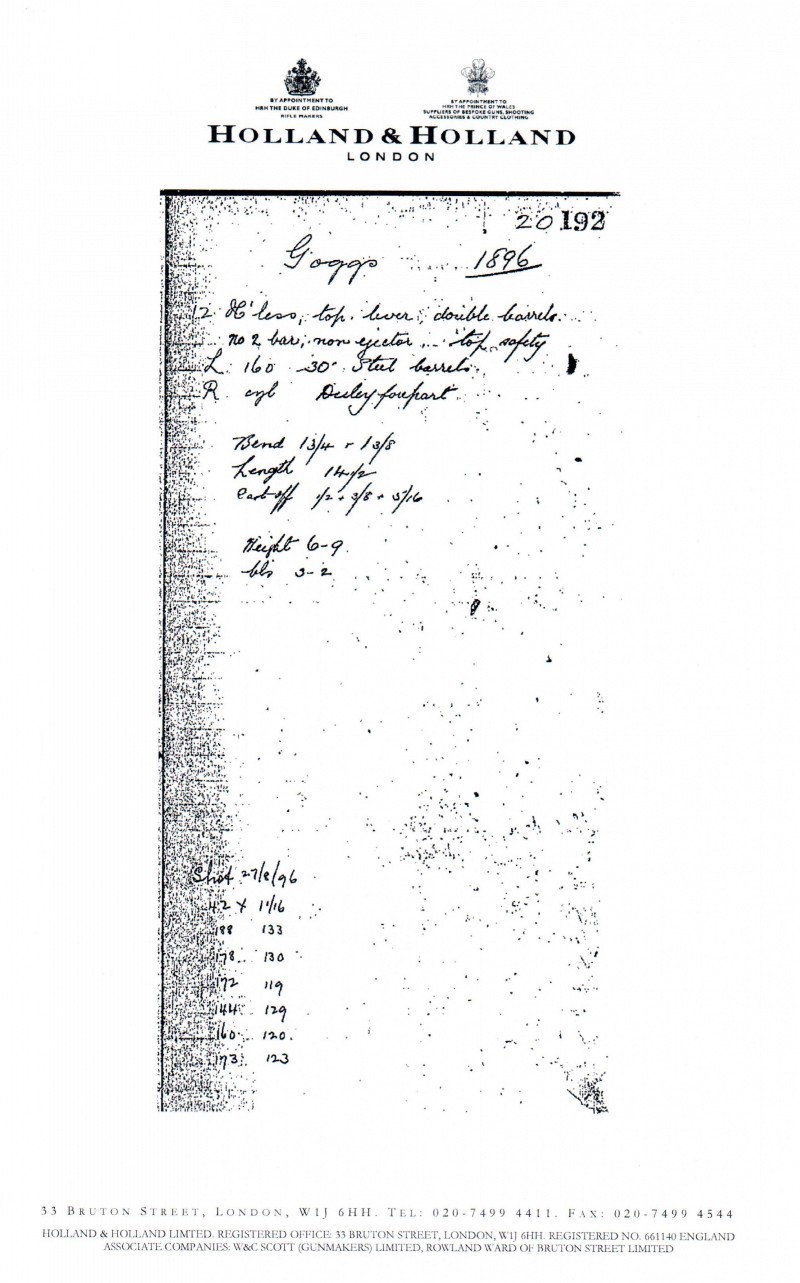 BY APPOINTMENT TO
HRH THE DUKE OF EDINBURGH
RIFLE MAKERS
BY APPOINTMENT TO
HRH THE PRINCE OF WALES
SUPPLIERS OF BESPOKE GUNS, SHOOTING
ACCESSORIES & COUNTRY CLOTHING
HOLLAND & HOLLAND
LONDON
20192
Goggs 1896
12 H'less, top lever, double barrels.
no 2 bar, non ejector, top safety
L 160 30" Steel barrels.
R cyl Deeley forepart.
Bend 1 3/4 r 1 3/8
Length 14 1/2
Cast off 1/2 + 3/8 + 5/16
Weight 6-9
bls 3-2
Shot 27/8/96
42 x 1 1/16
188 133
178 130
172 119
144 129
160 120.
173 123
33 BRUTON STREET, LONDON, W1J 6HH. TEL: 020-7499 4411. FAX: 020-7499 4544
HOLLAND & HOLLAND LIMTED. REGISTERED OFFICE: 33 BRUTON STREET, LONDON, W1J 6HH. REGISTERED NO. 661140 ENGLAND
ASSOCIATE COMPANIES: W&C SCOTT (GUNMAKERS) LIMITED, ROWLAND WARD OF BRUTON STREET LIMITED